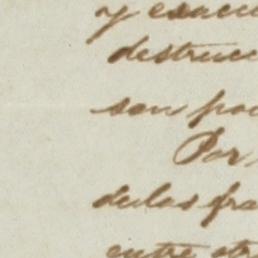 y exacti
destrucc
son poc
Por
de las fra
entre otr